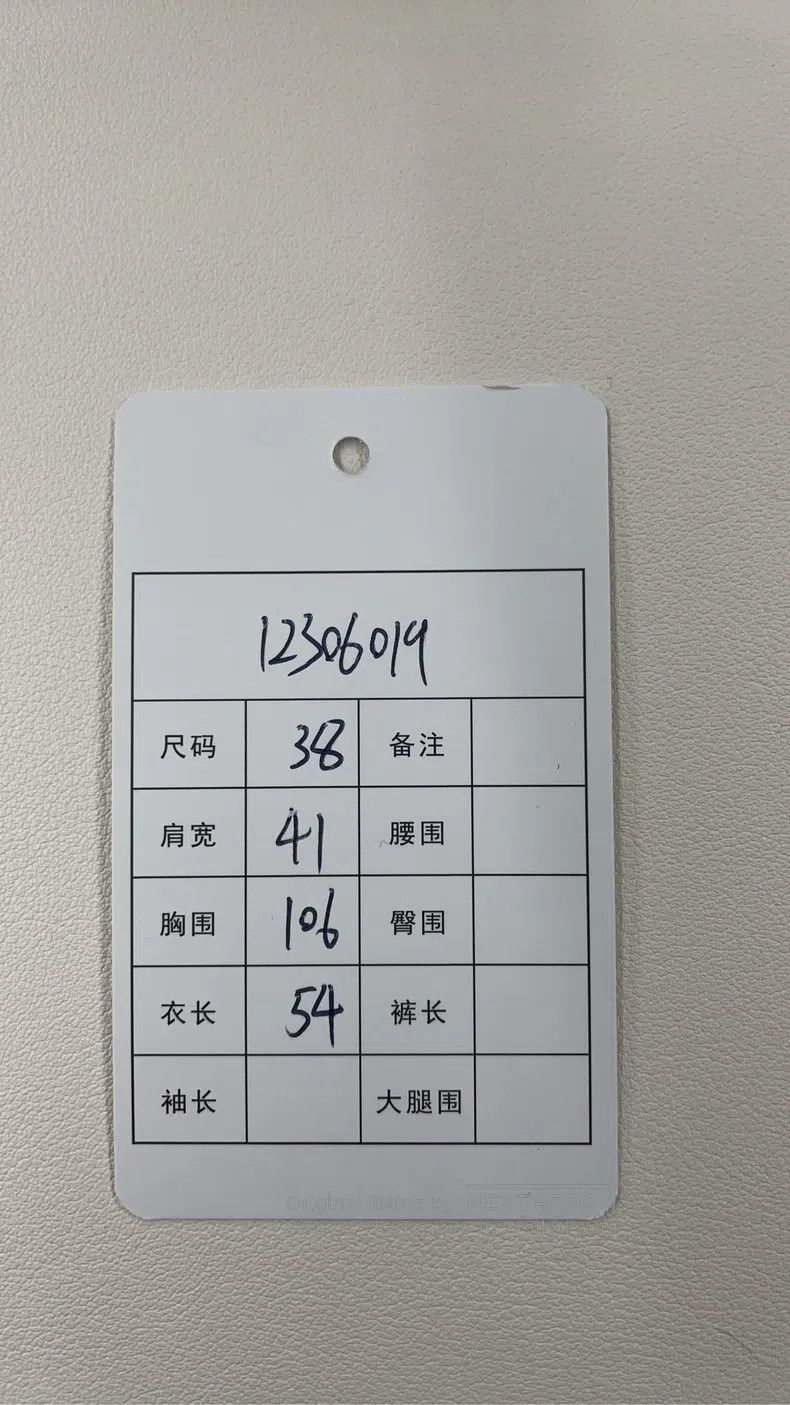 12306019
尺码 38 备注
肩宽 41 腰围
胸围 106 臀围
衣长 54 裤长
袖长 大腿围
Original listing by